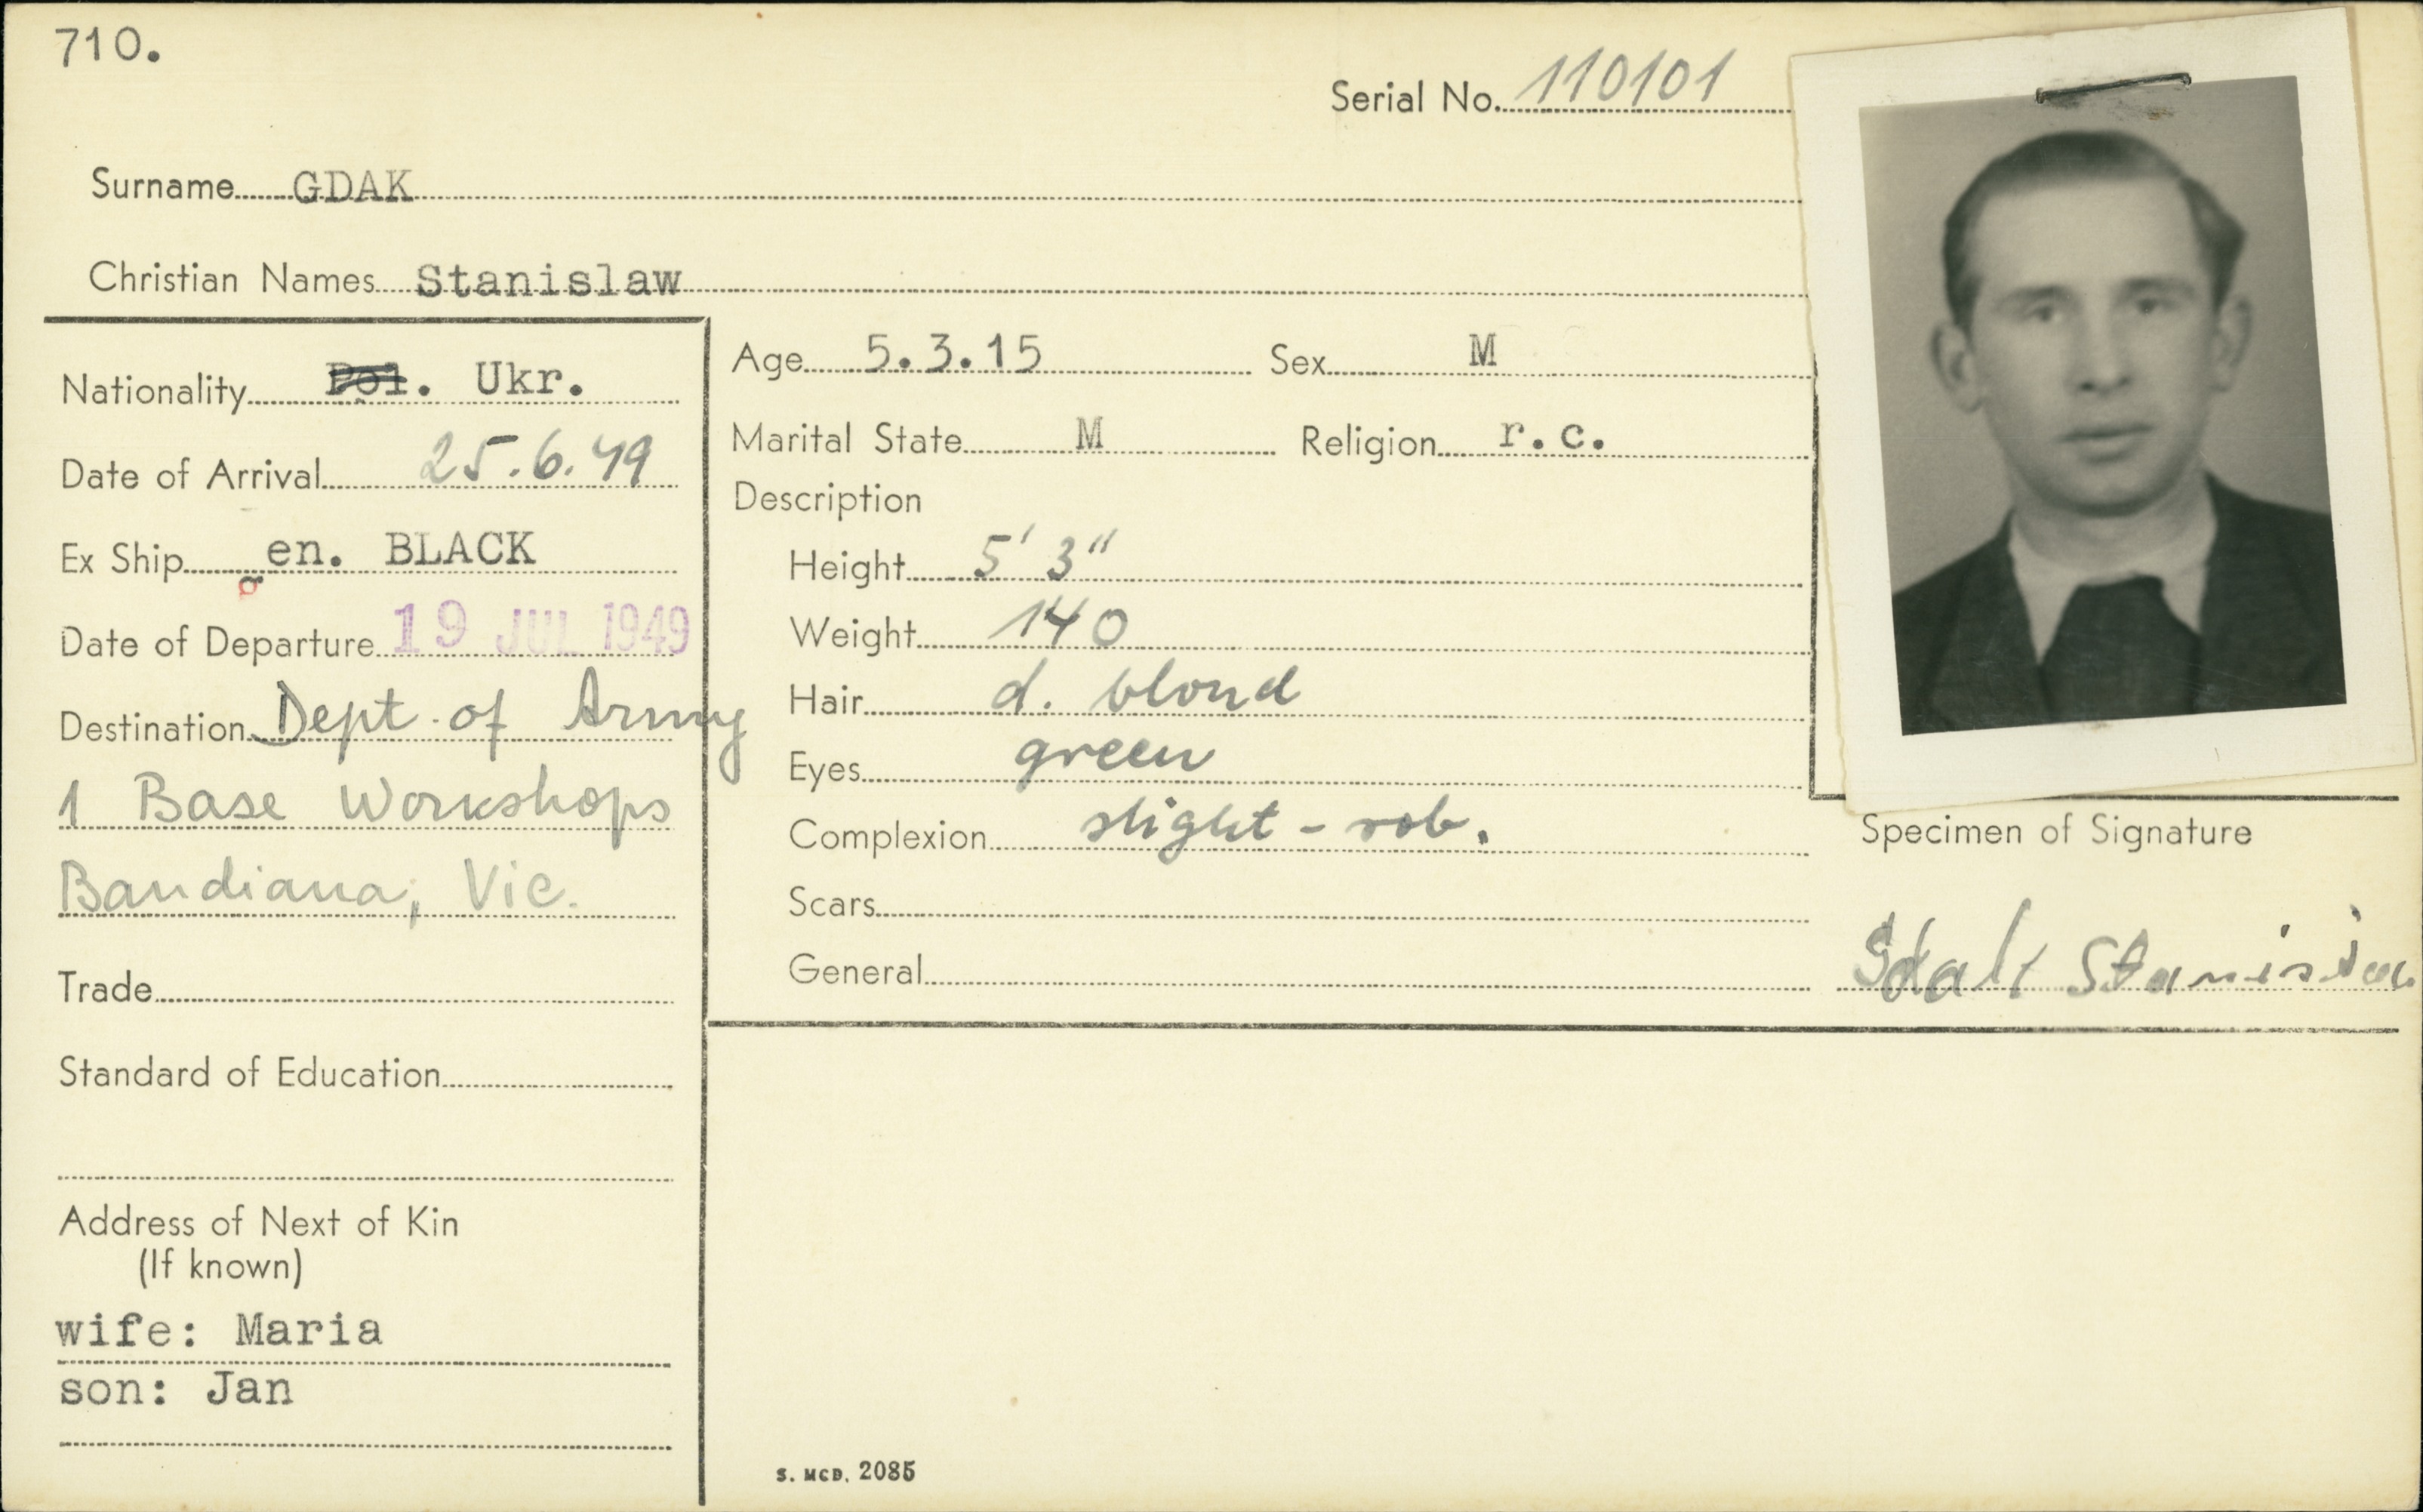 710.
Serial No. 110101
Surname GDAK
Christian Names Stanislaw
Nationality Pol. Ukr.
Date of Arrival 25.6.49
Ex Ship en. BLACK
Date of Departure 19 JUL 1949
Destination Dept. of Army
1 Base Workshops
Bandiana, Vic.
Trade
Standard of Education
Address of Next of Kin
(If known)
wife: Maria
son: Jan
Age 5.3.15 Sex M
Marital State M Religion r.c.
Description
Height 5' 3"
Weight 140
Hair d. blond
Eyes green
Complexion slight - rob.
Scars
General
Specimen of Signature
Gdak Stanisław
S. MCD. 2085